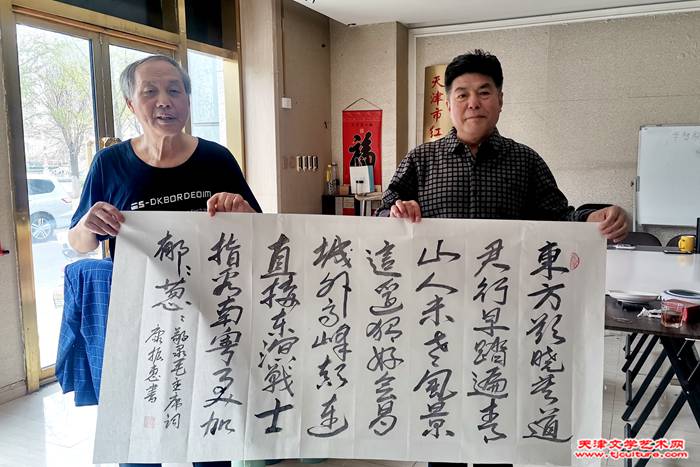 東方欲晓莫道
君行早踏遍青
山人未老風景
這邊独好会昌
城外高峰颠连
直接东溟战士
指看南粤更加
郁〻葱〻敬录毛主席词
康振惠书
天津市红
福
S-DKBORDEDIM
天津文学艺术网
www.tjculture.com